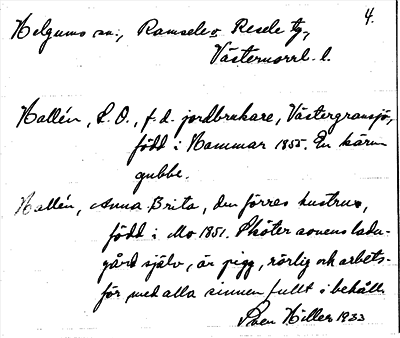 4.
Helgums sn., Ramsele o. Resele tg,
Västernorrl. l.
Hallén, L. O., f. d. jordbrukare, Västergransjö,
född i Hammar 1855. En kärn
gubbe.
Hallén, Anna Brita, den förres hustru,
född i Mo 1851. Sköter sonens ladu-
gård själv, är pigg, rörlig och arbets-
för med alla sinnen fullt i behåll.
Sven Hiller 1933